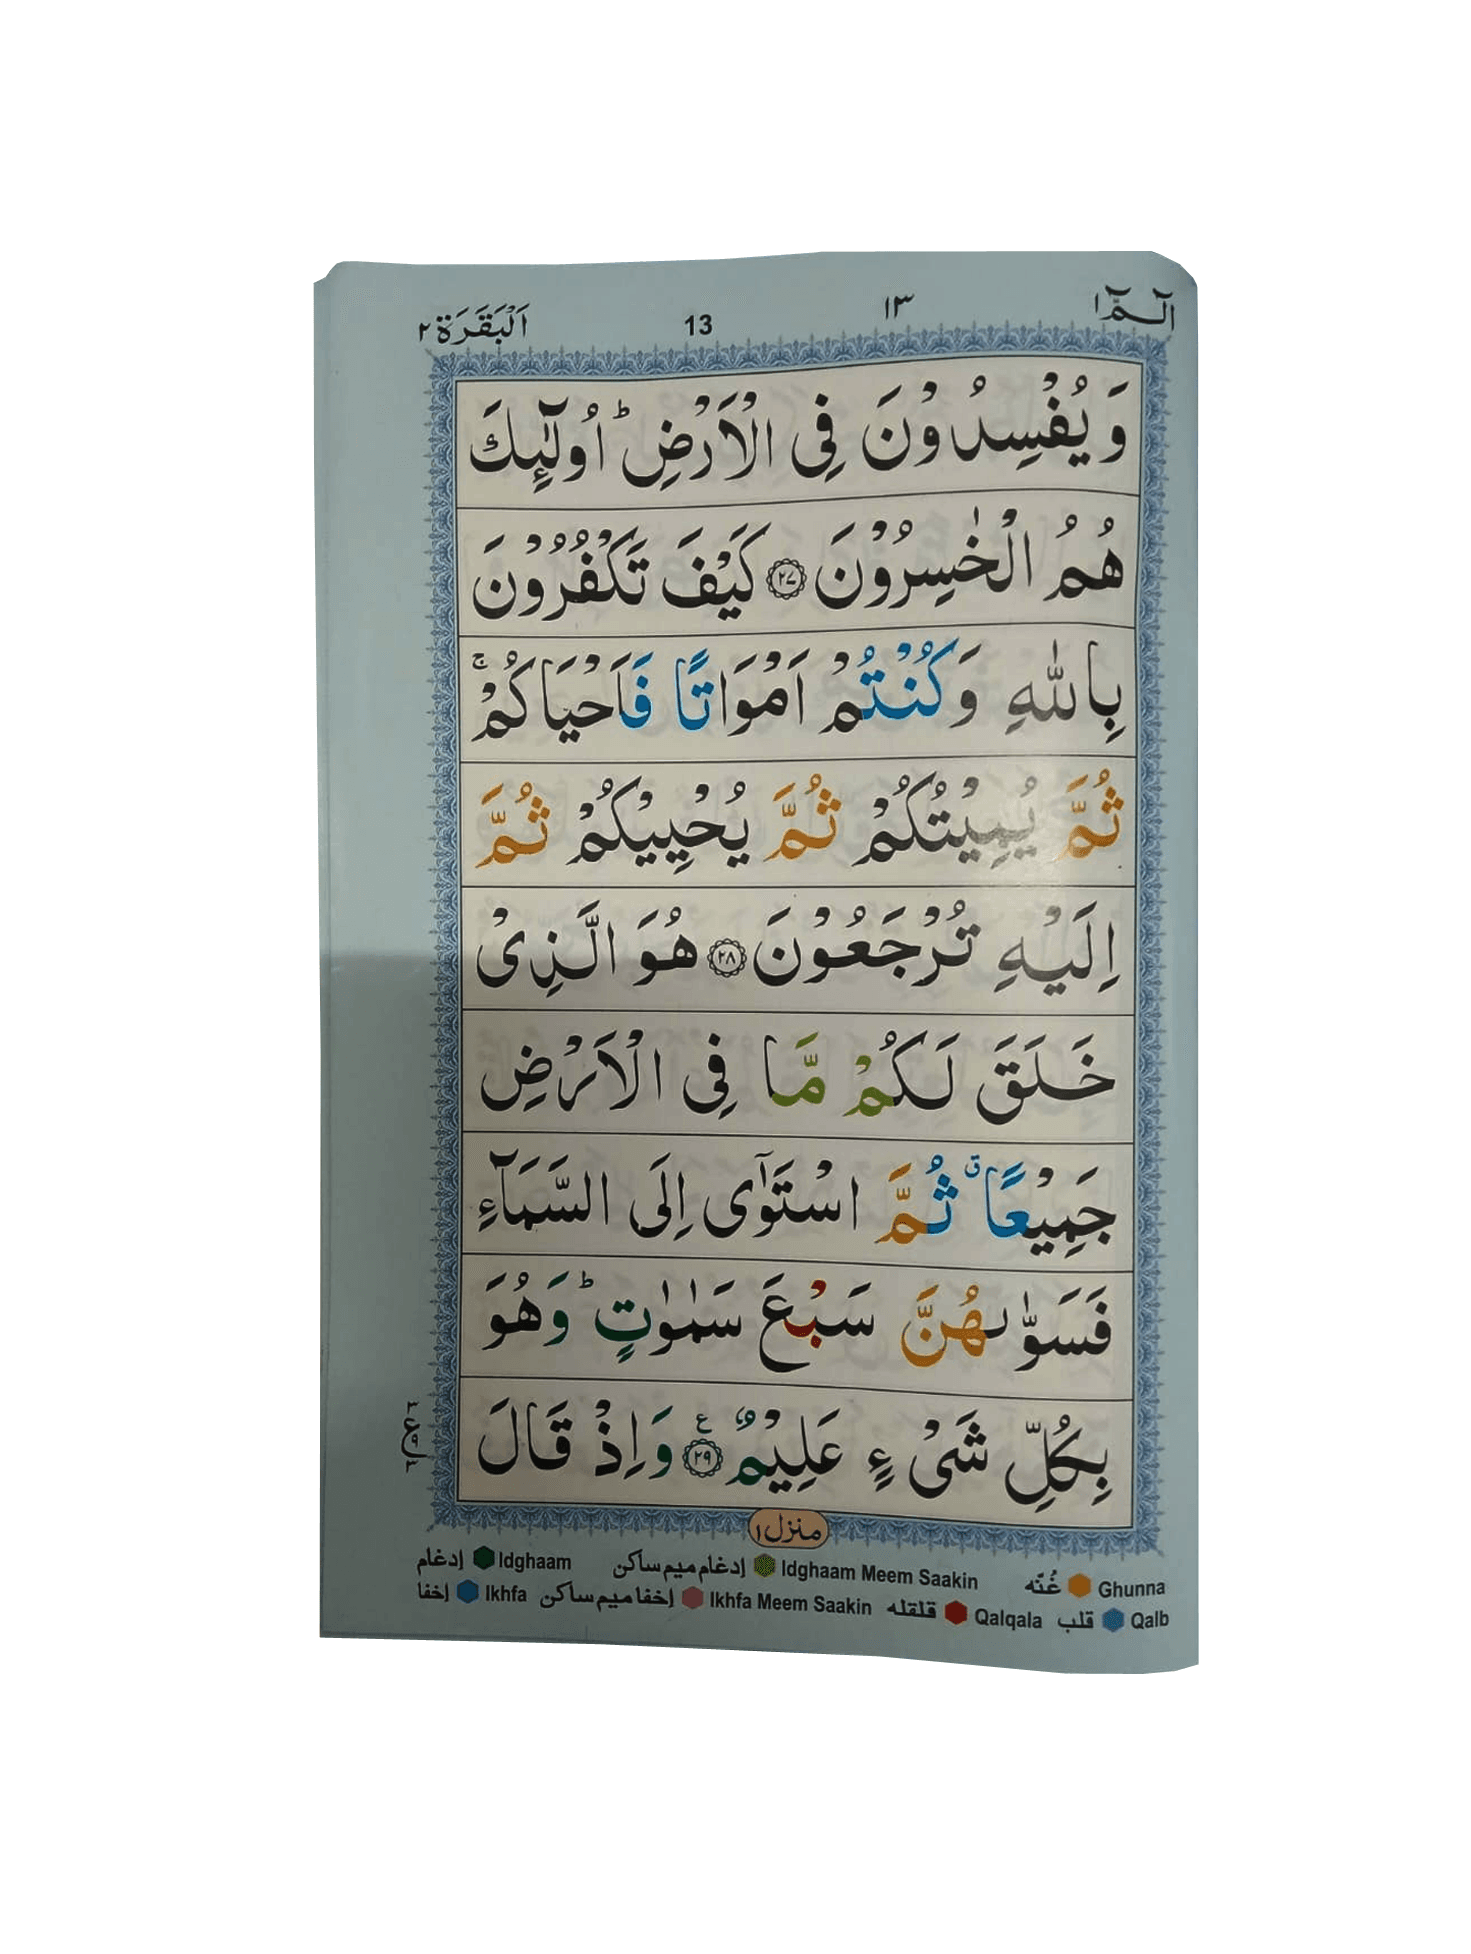 الٓـمّٓ ١ ١٣ 13 اَلْبَقَرَة ٢
وَيُفْسِدُوْنَ فِى الْاَرْضِ ؕ اُولٰٓئِكَ
هُمُ الْخٰسِرُوْنَ ﴿٢٧﴾ كَيْفَ تَكْفُرُوْنَ
بِاللّٰهِ وَكُنْتُمْ اَمْوَاتًا فَاَحْيَاكُمْ ۚ
ثُمَّ يُمِيْتُكُمْ ثُمَّ يُحْيِيْكُمْ ثُمَّ
اِلَيْهِ تُرْجَعُوْنَ ﴿٢٨﴾ هُوَ الَّذِىْ
خَلَقَ لَكُمْ مَّا فِى الْاَرْضِ
جَمِيْعًا ۗ ثُمَّ اسْتَوٰٓى اِلَى السَّمَآءِ
فَسَوّٰىهُنَّ سَبْعَ سَمٰوٰتٍ ؕ وَهُوَ
بِكُلِّ شَىْءٍ عَلِيْمٌ ﴿٢٩﴾ ع وَاِذْ قَالَ
ع ٣ ٩ ٣
منزل ١
Ghunna غُنّه Idghaam Meem Saakin إدغام ميم ساكن Idghaam إدغام
Qalb قلب Qalqala قلقله Ikhfa Meem Saakin إخفا ميم ساكن Ikhfa إخفا